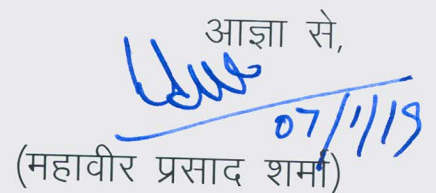 आज्ञा से,
07/1/19
(महावीर प्रसाद शर्मा)